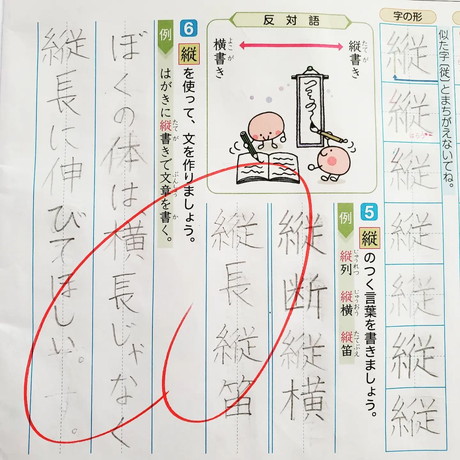 字の形
似た字〔従〕とまちがえないでね。
縦
縦
縦
縦
縦
縦
縦
5 縦のつく言葉を書きましょう。
例 縦列 縦横 縦笛
じゅうれつ じゅうおう たてぶえ
縦断 縦横
縦長 縦笛
反対語
縦書き
たてが
横書き
よこが
6 縦を使って、文を作りましょう。
例 はがきに縦書きで文章を書く。
たてが ぶんしょう か
ぼくの体は、横長じゃなく
縦長に伸びてほしい。